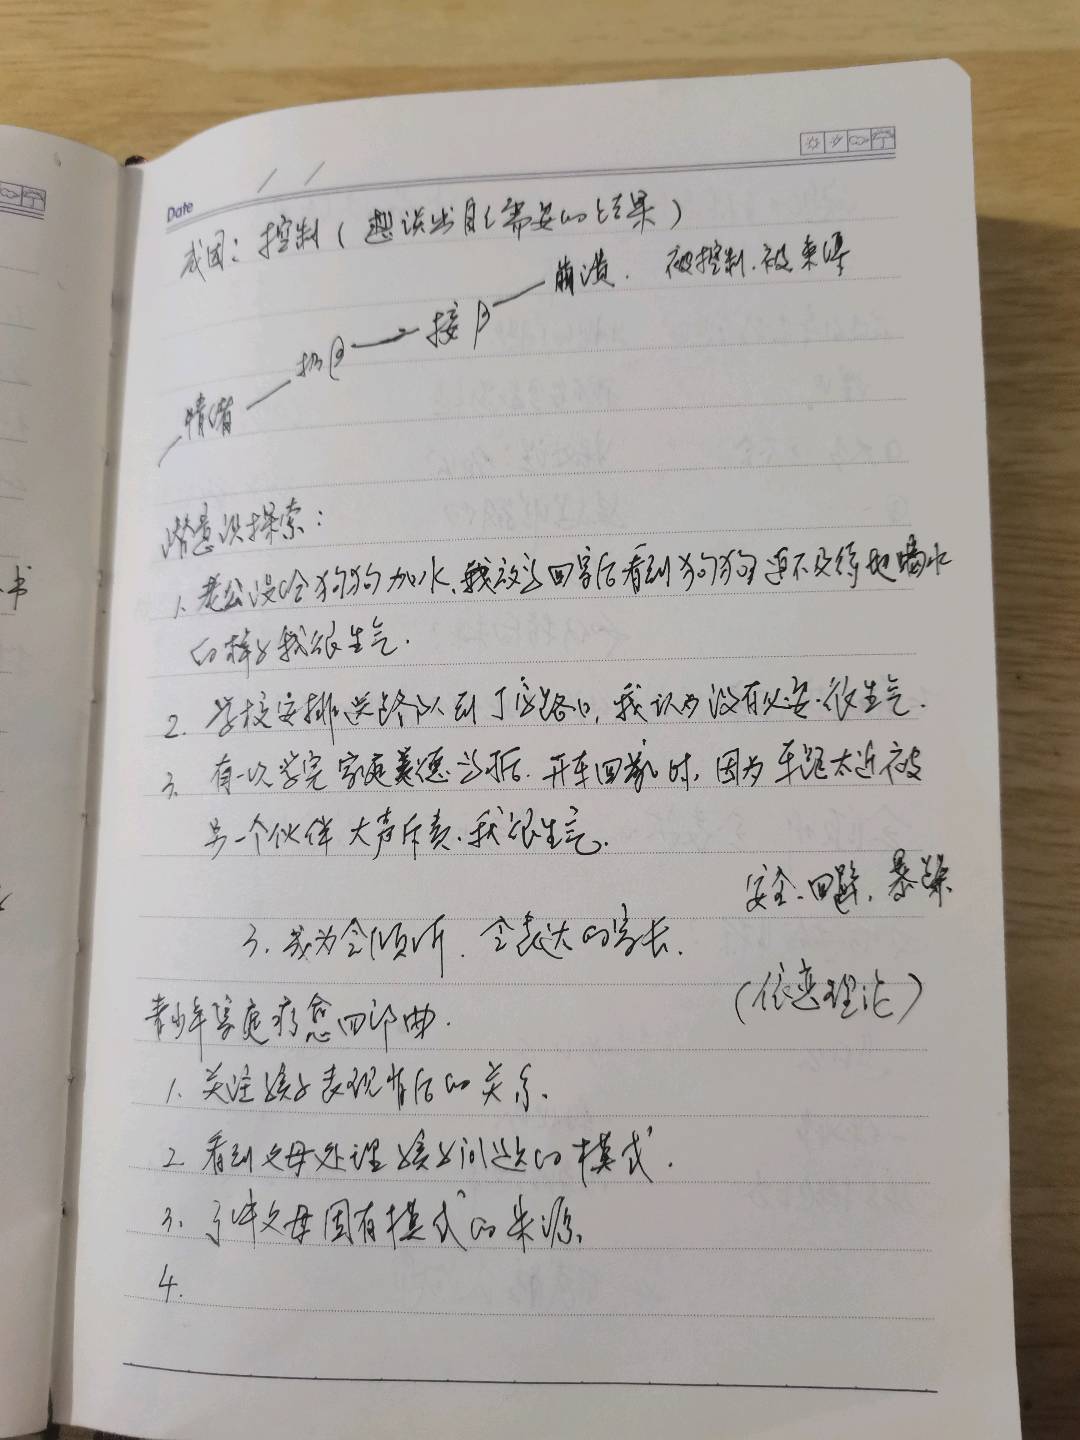 Date
成因：控制（想说出自己需要的结果）
崩溃． 被控制．被束缚
接β
扔β
情绪
潜意识探索：
1. 老公没给狗狗加水，我放学回家后看到狗狗迫不及待地喝水
的样子我很生气．
2. 学校安排送路队到丁字路口，我认为没有必要．很生气．
3. 有一次学完家庭美德当晚．开车回家时，因为车距太近被
另一个伙伴大声斥责．我很生气．
安全、回避、暴躁
3. 成为会倾听．会表达的家长．
（依恋理论）
青少年家庭疗愈四部曲．
1. 关注孩子表现背后的关系．
2. 看到父母处理孩子问题的模式．
3. 了解父母固有模式的来源．
4.
书